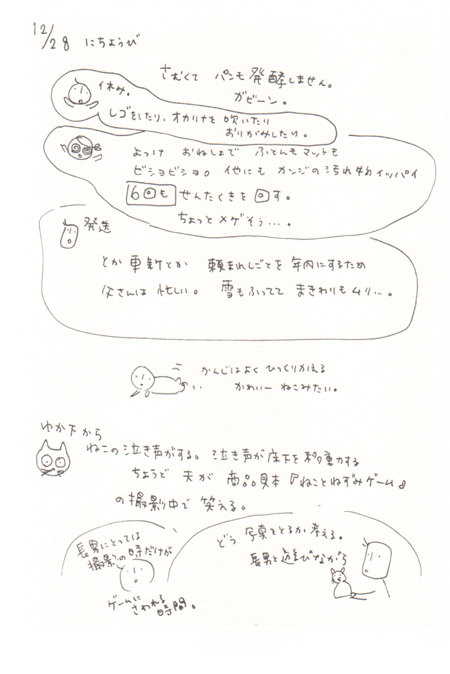 12/28 にちようび
さむくて パンも発酵しません。
ガビーン。
休み。
レゴをしたり、オカリナを吹いたり
おりがみしたり。
よっけ おねしょで ふとんもマットも
ビショビショ。他にも カンジの汚れ物イッパイ
6回も せんたくきを回す。
ちょっとメゲそう…。
発送
とか 更新とか 頼まれしごとを 年内にするため
父さんは 忙しい。 雪もふってて まきわりもムリ…。
かんじはよく ひっくりかえる
かわいー ねこみたい。
ゆか下から
ねこの泣き声がする。泣き声が床下を移動する
ちょうど 夫が 商品見本『ねことねずみゲーム』
の撮影中で 笑える。
長男にとっては
撮影の時だけが
ゲームに
さわれる時間。
どう 写真をとるか 考える。
長男と遊びながら